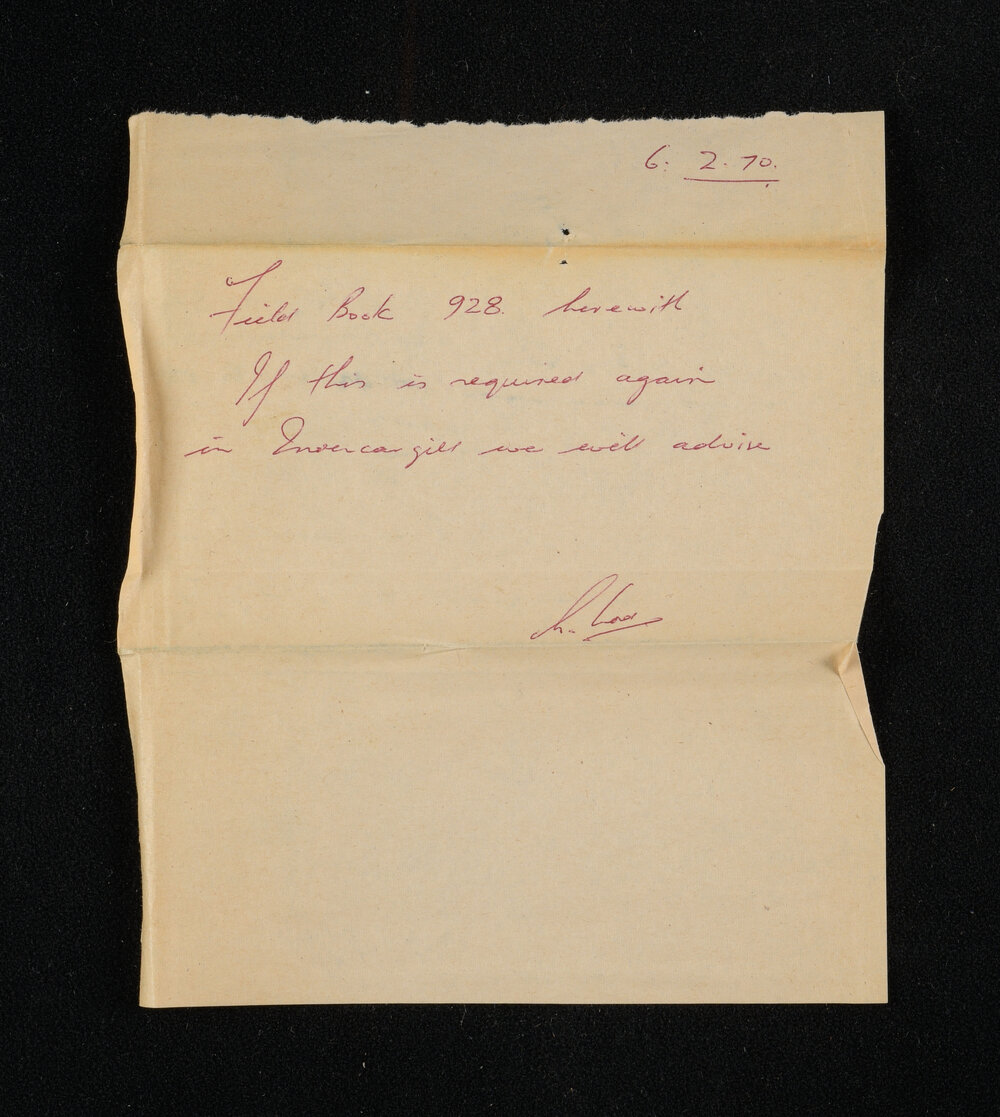 6. 2. 70.
Field Book 928. herewith
If this is required again
in Invercargill we will advise